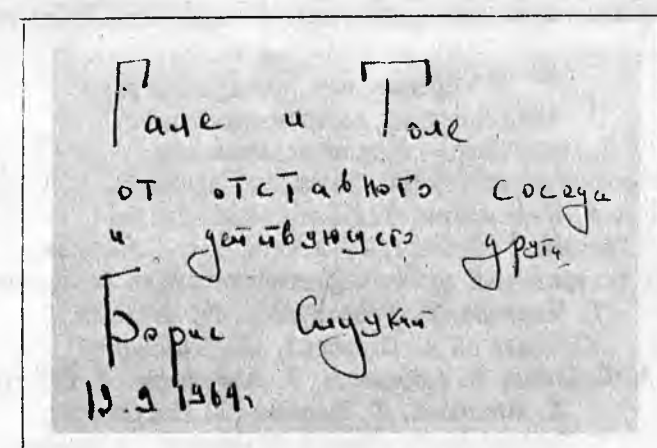 Гале и Толе
от отставного соседа
и действующего друга
Борис Слуцкий
19.9 1964г